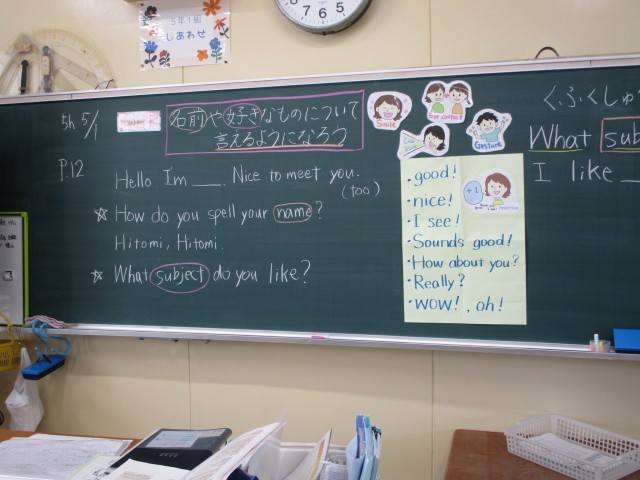 5年1組
しあわせ
7 6 5
5h 5/1
名前や好きなものについて
言えるようになろう
P.12
Hello I'm ___. Nice to meet you.
(too)
☆ How do you spell your name?
Hitomi, Hitomi.
☆ What subject do you like?
Smile
Eye contact
Gesture
+1
・good!
・nice!
・I see!
・Sounds good!
・How about you?
・Really?
・WOW!, oh!
くふくしゅう
What sub
I like _